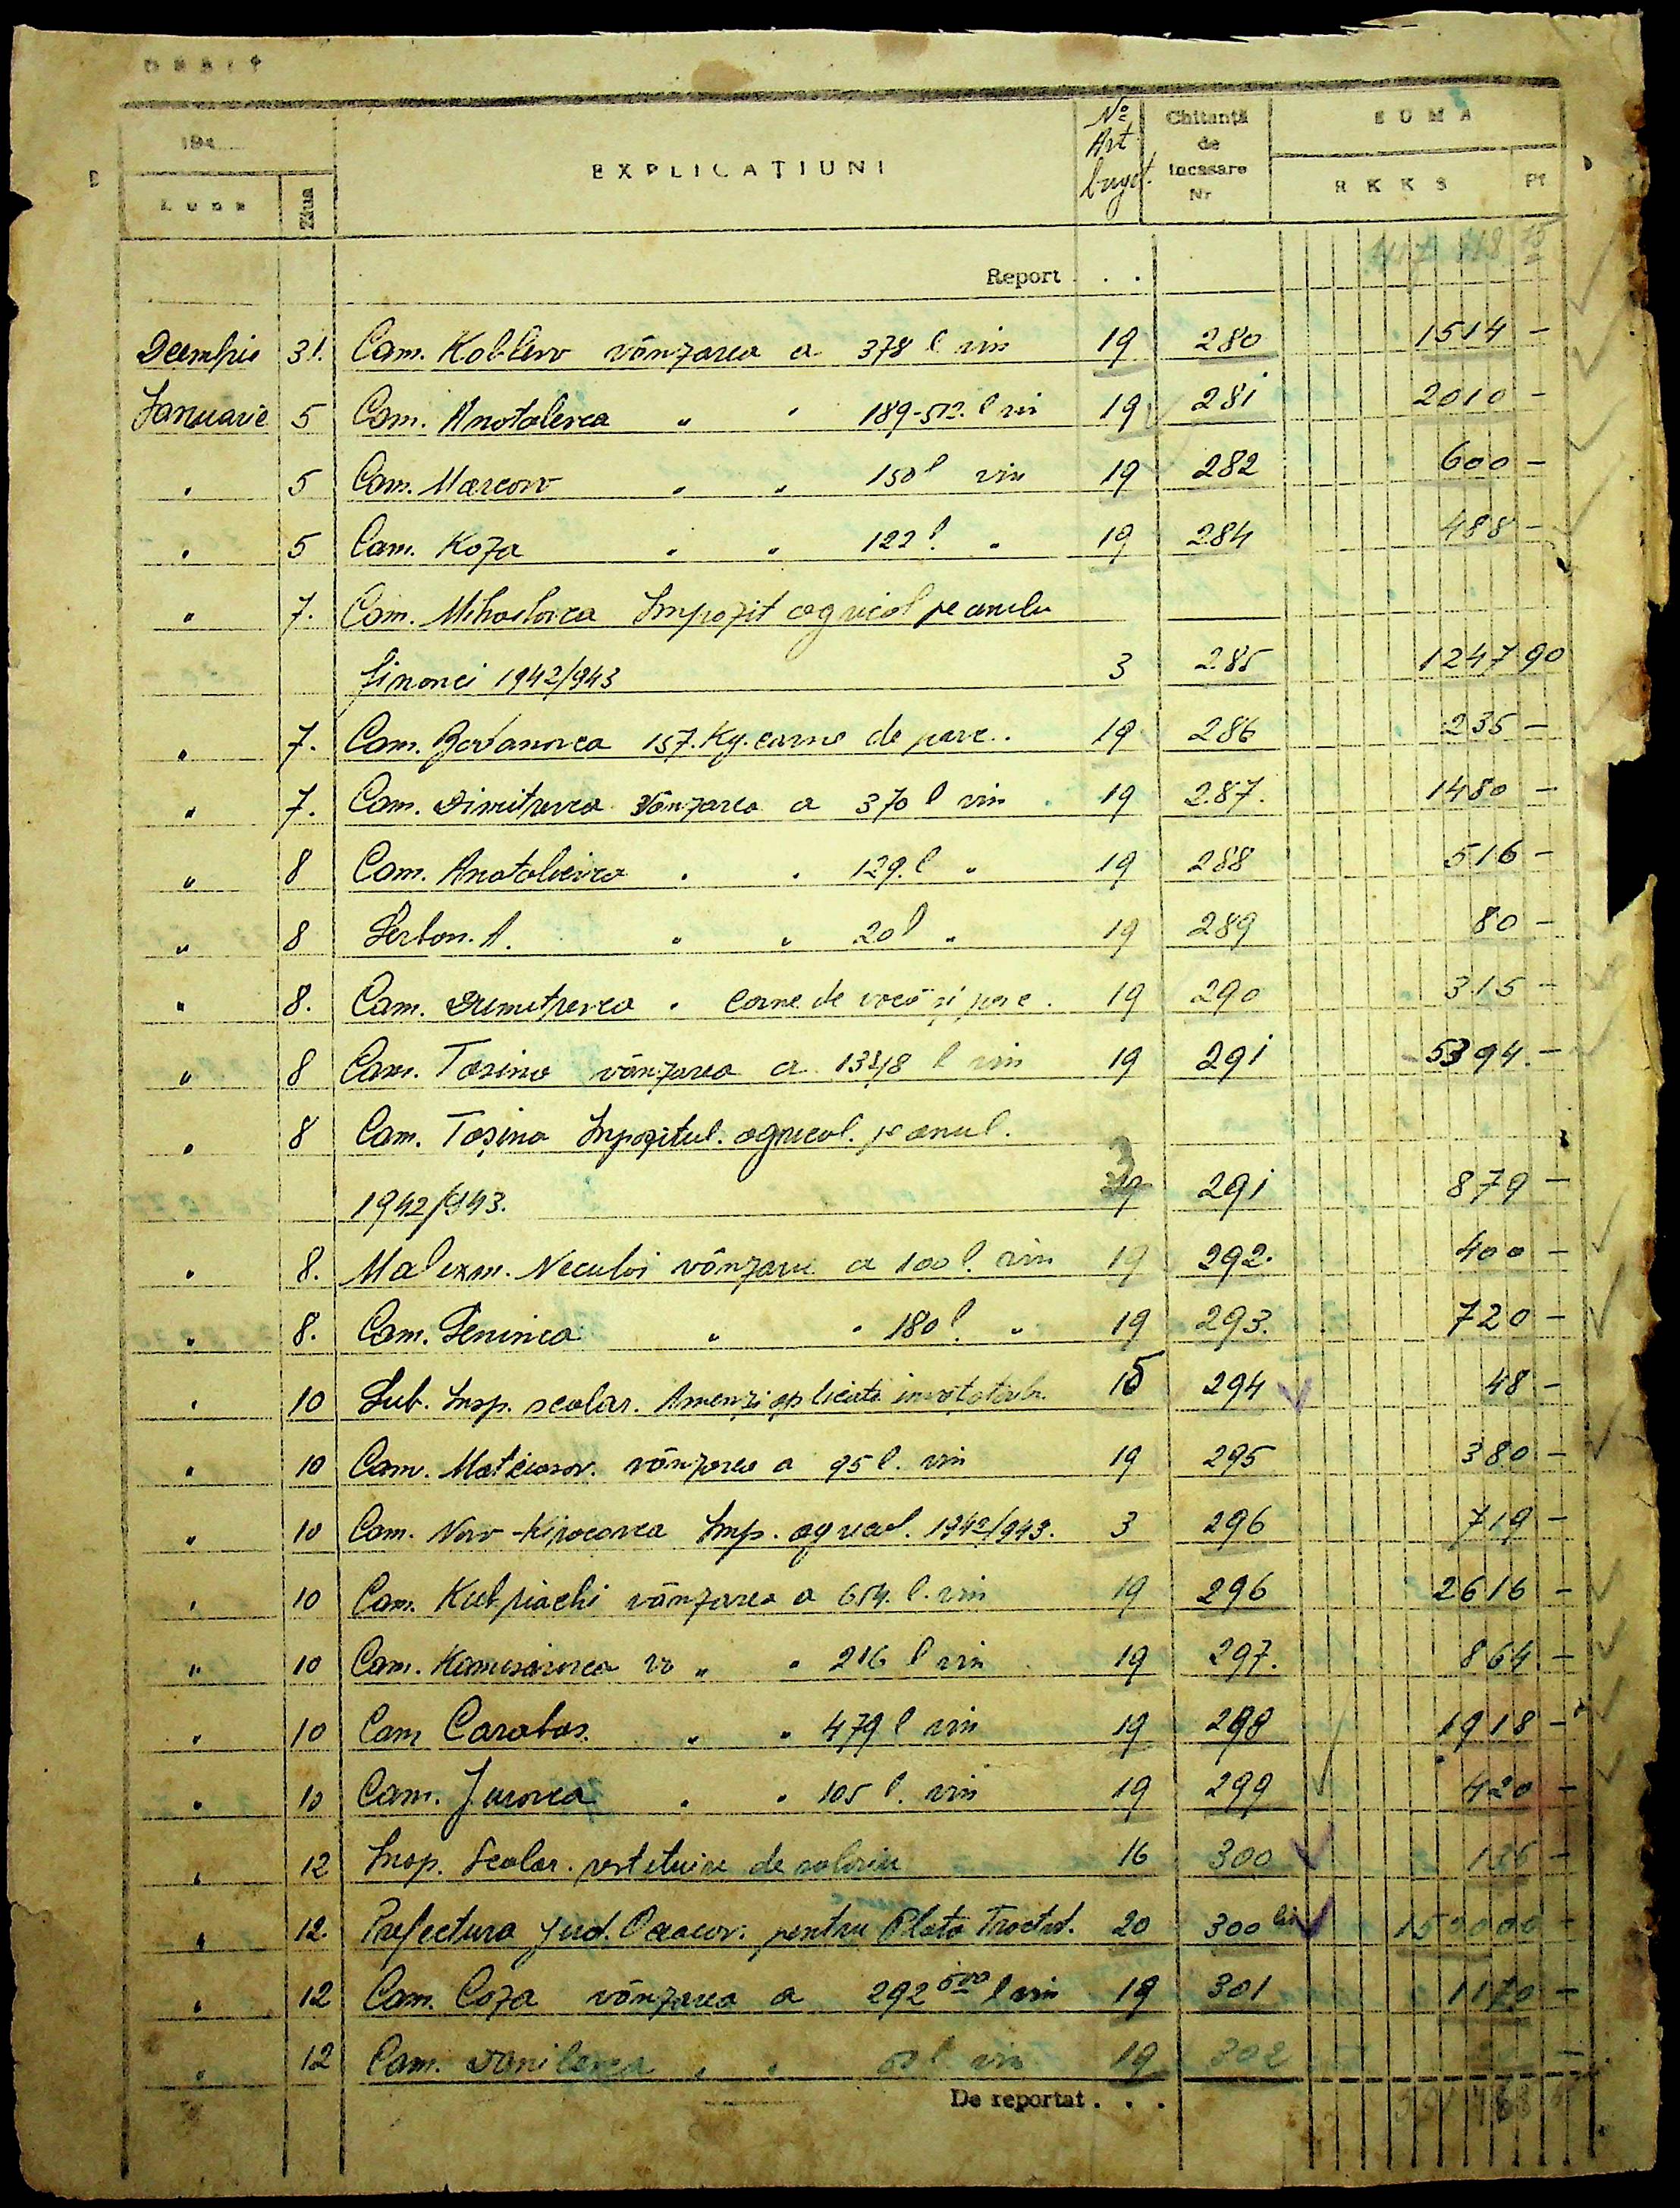 DEBIT
194
EXPLICAȚIUNI
No Art. buget.
Chitanță de incasare Nr
SUMA
Luna Ziua
RKKS Pf
Report . .
Decembrie 31. Com. Koblevo vânzarea a 378 l vin 19 280 1514 -
Januarie 5 Com. Anatolevca " " l vin 19 281 2010 -
" 5 Com. Marcovo " " 150 l vin 19 282 600 -
" 5 Com. Koza " " 122 l. " 19 284 488 -
" 7. Com. Mihailovca Impozit agricol pe anulu
financi 1942/943 3 285 1247 90
" 7. Com. 157. Kg. carne de porc. 19 286 235 -
" 7. Com. Dimitrevca Vânzarea a 370 l vin 19 287. 1480 -
" 8 Com. Anatolievca " " 129. l " 19 288 516 -
" 8 Serban. A. " " 20 l " 19 289 80 -
" 8. Com. Dumitrevca " carne de vacă și porc. 19 290 315 -
" 8 Com. Tașino vânzarea a l vin 19 291 5394. -
" 8 Com. Tașino Impozitul. agricol. pe anul.
1942/943. 3 291 879 -
" 8. Neculoi vânzare a 100 l. vin 19 292. 400 -
" 8. Com. Leninca " " 180 l. " 19 293. 720 -
" 10 Sub. Insp. scolar. Amenzi aplicate 15 294 48 -
" 10 Com. vânzarea a 95 l. vin 19 295 380 -
" 10 Com. Novo- Imp. agricol. 1942/943. 3 296 719 -
" 10 Com. vânzarea a 654. l. vin 19 296 2616 -
" 10 Com. " " 216 l vin 19 297. 864 -
" 10 Com Carabas. " " 479 l vin 19 298 1918 -
" 10 Com. Jurovca " " 105 l. vin 19 299 420 -
" 12 Insp. Scolar. restituire de salariu 16 300 -
" 12. Prefectura Jud. Oceacov. pentru Plata Tractor. 20 300 bis 150000 -
" 12 Com. Coza vânzarea a 292 500 l vin 19 301 1170 -
" 12 Com. Danilevca " " l. vin 19 302 -
De reportat . . .